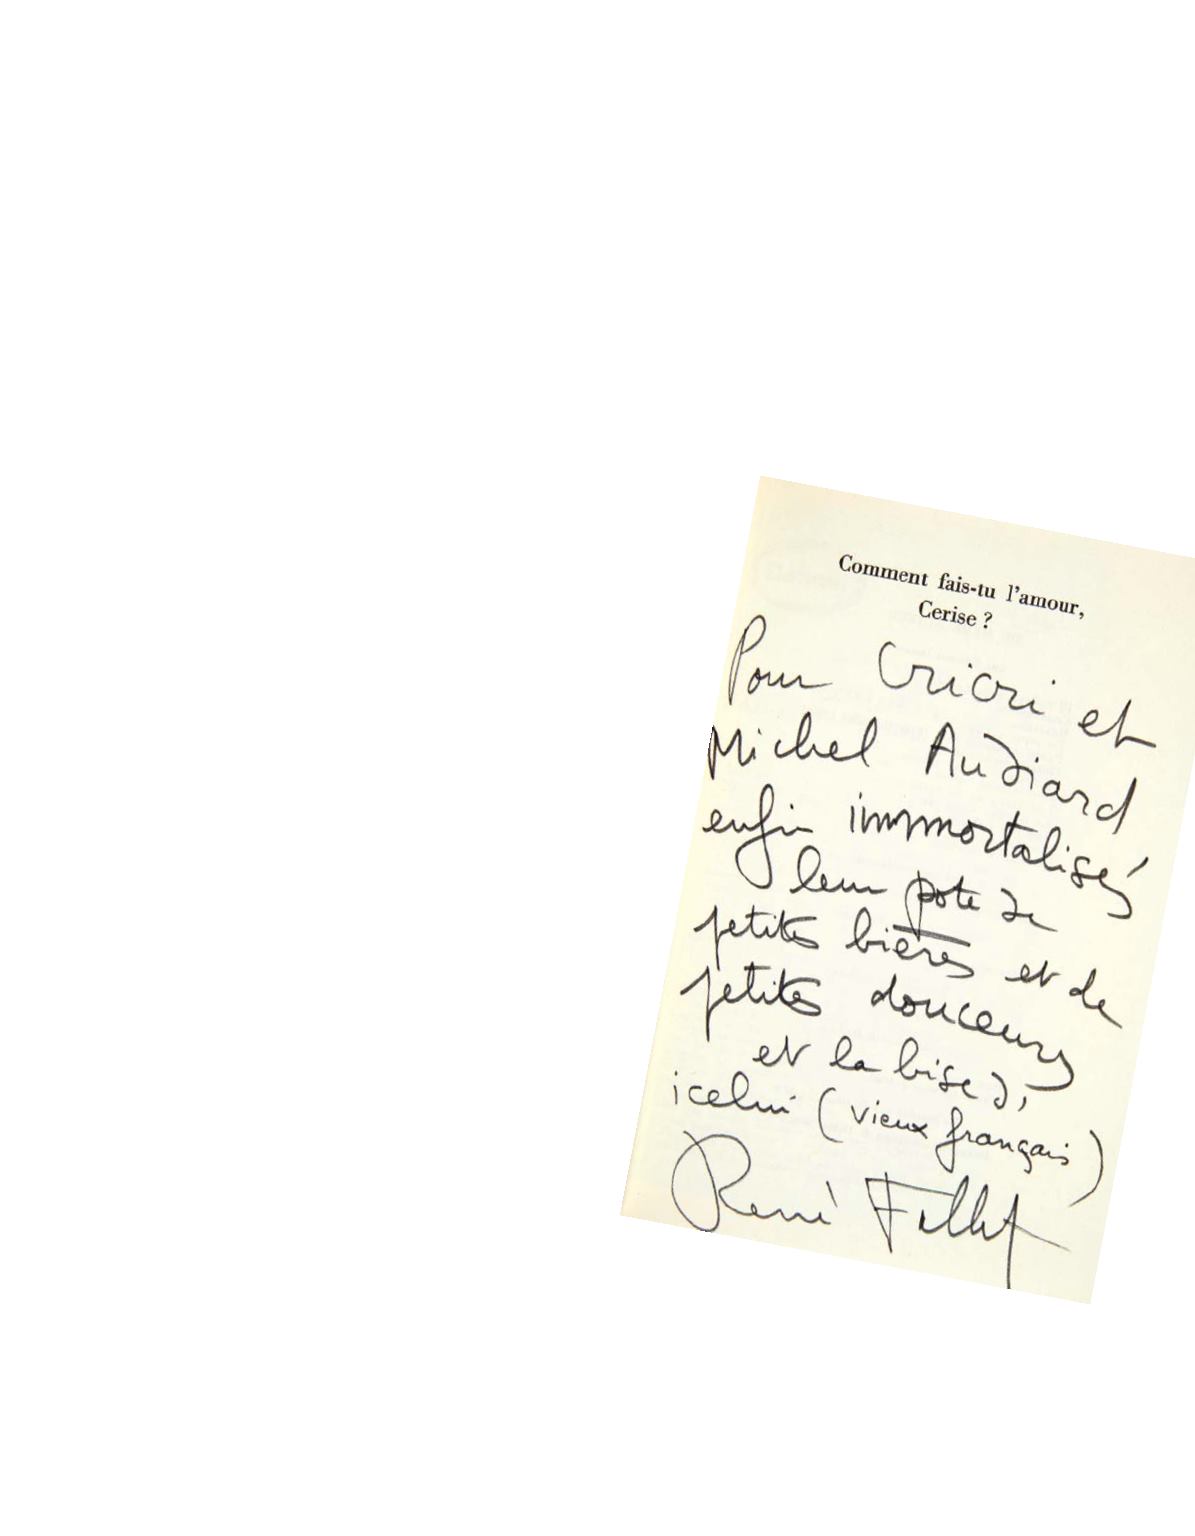 Comment fais-tu l'amour,
Cerise ?
Pour Cricri et
Michel Audiard
enfin immortalisés
leur pote de
petites bières et de
petites douceurs
et la bise d'
icelui (vieux français)
René Fallet